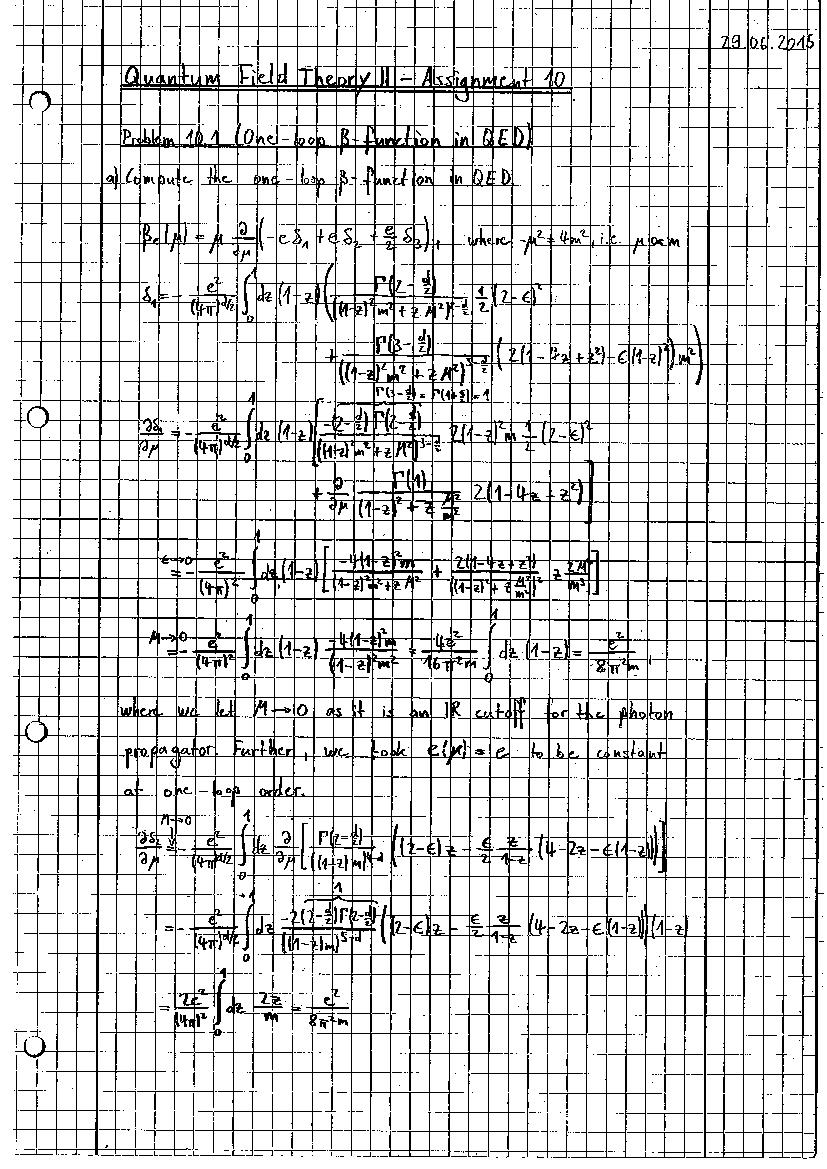 29.06.2015
Quantum Field Theory II – Assignment 10
Problem 10.1 (One-loop β-function in QED)
a) Compute the one-loop β-function in QED
β_e(μ) = μ ∂/∂μ (-e δ₁ + e δ₂ + e/2 δ₃), where -μ² = 4m², i.e. μ ∝ m
δ₁ = - e²/(4π)^{d/2} ∫₀¹ dz (1-z) ( Γ(2-d/2)/((1-z)²m² + zM²)^{2-d/2} 1/2 (2-ϵ)²
+ Γ(3-d/2)/((1-z)²m² + zM²)^{3-d/2} (2(1-4z+z²) - ϵ(1-z)²) m² )
Γ(3-d/2) = Γ(1+ϵ/2) = 1
∂δ₁/∂μ = - e²/(4π)^{d/2} ∫₀¹ dz (1-z) [ -(2-d/2) Γ(2-d/2)/((1-z)²m² + zM²)^{3-d/2} 2(1-z)²m 1/2 (2-ϵ)²
+ ∂/∂μ Γ(1)/((1-z)² + z M²/m²) 2(1-4z+z²) ]
ϵ→0 = - e²/(4π)² ∫₀¹ dz (1-z) [ -4(1-z)²m/((1-z)²m² + zM²) + 2(1-4z+z²)/((1-z)² + z M²/m²)² z 2M²/m³ ]
M→0 = - e²/(4π)² ∫₀¹ dz (1-z) -4(1-z)²m/((1-z)²m²) = 4e²/(16π²m) ∫₀¹ dz (1-z) = e²/(8π²m),
where we let M→0 as it is an IR cutoff for the photon
propagator. Further, we took e(μ) = e to be constant
at one-loop order.
∂δ₂/∂μ M→0 = - e²/(4π)^{d/2} ∫₀¹ dz ∂/∂μ [ Γ(2-d/2)/((1-z)m)^{4-d} ((2-ϵ)z - ϵ/2 z/(1-z) (4-2z-ϵ(1-z))) ]
= - e²/(4π)^{d/2} ∫₀¹ dz -2(2-d/2)Γ(2-d/2)/((1-z)m)^{5-d} ((2-ϵ)z - ϵ/2 z/(1-z) (4-2z-ϵ(1-z))) (1-z)
= 2e²/(4π)² ∫₀¹ dz 2z/m = e²/(8π²m)